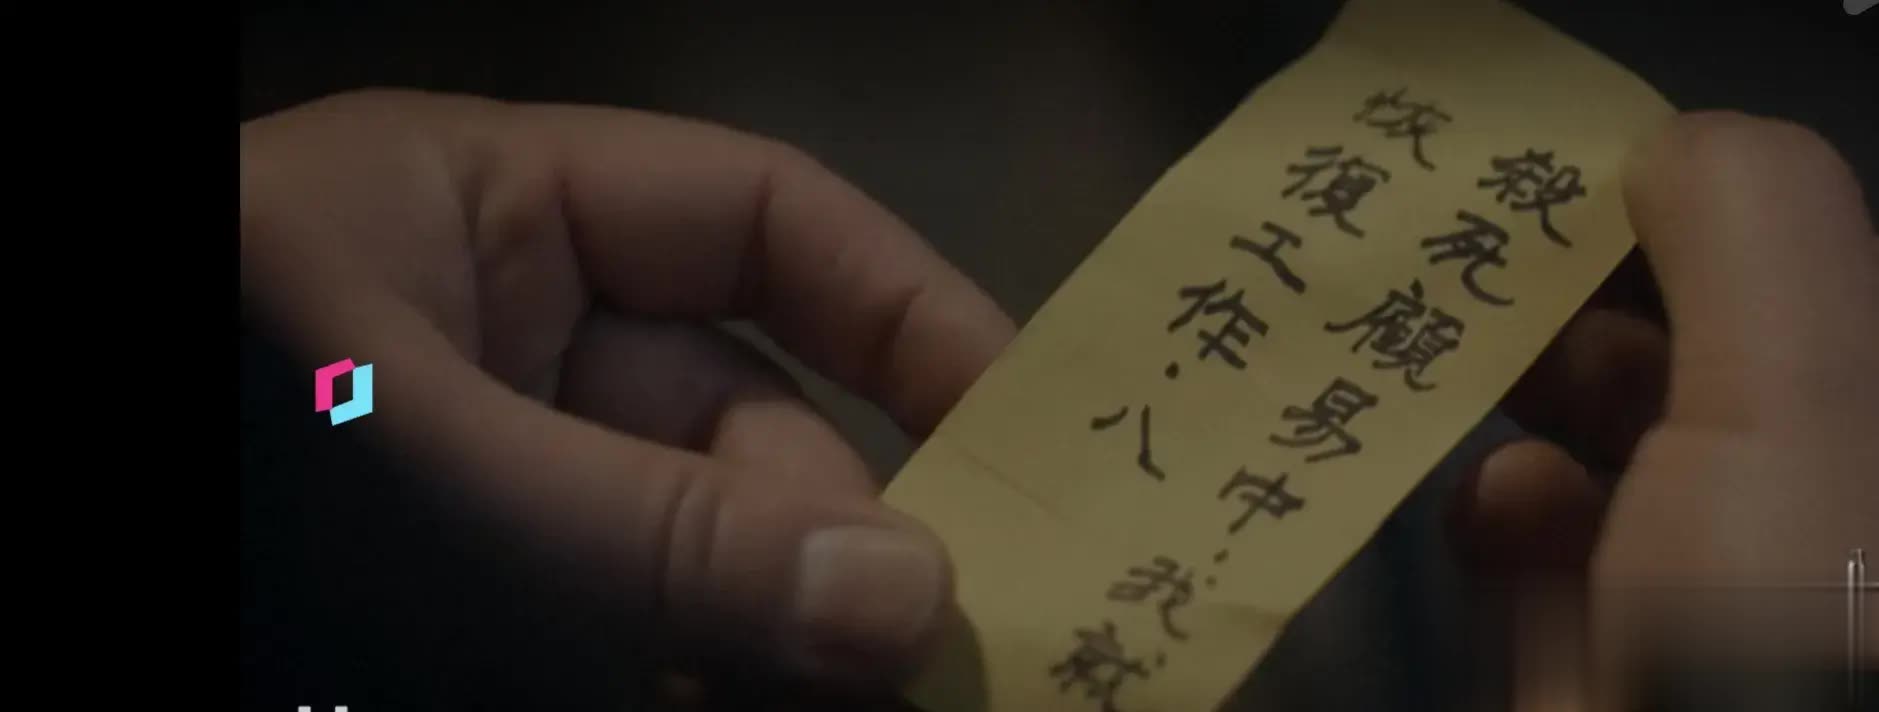 殺死顧易中：我就
恢復工作·八